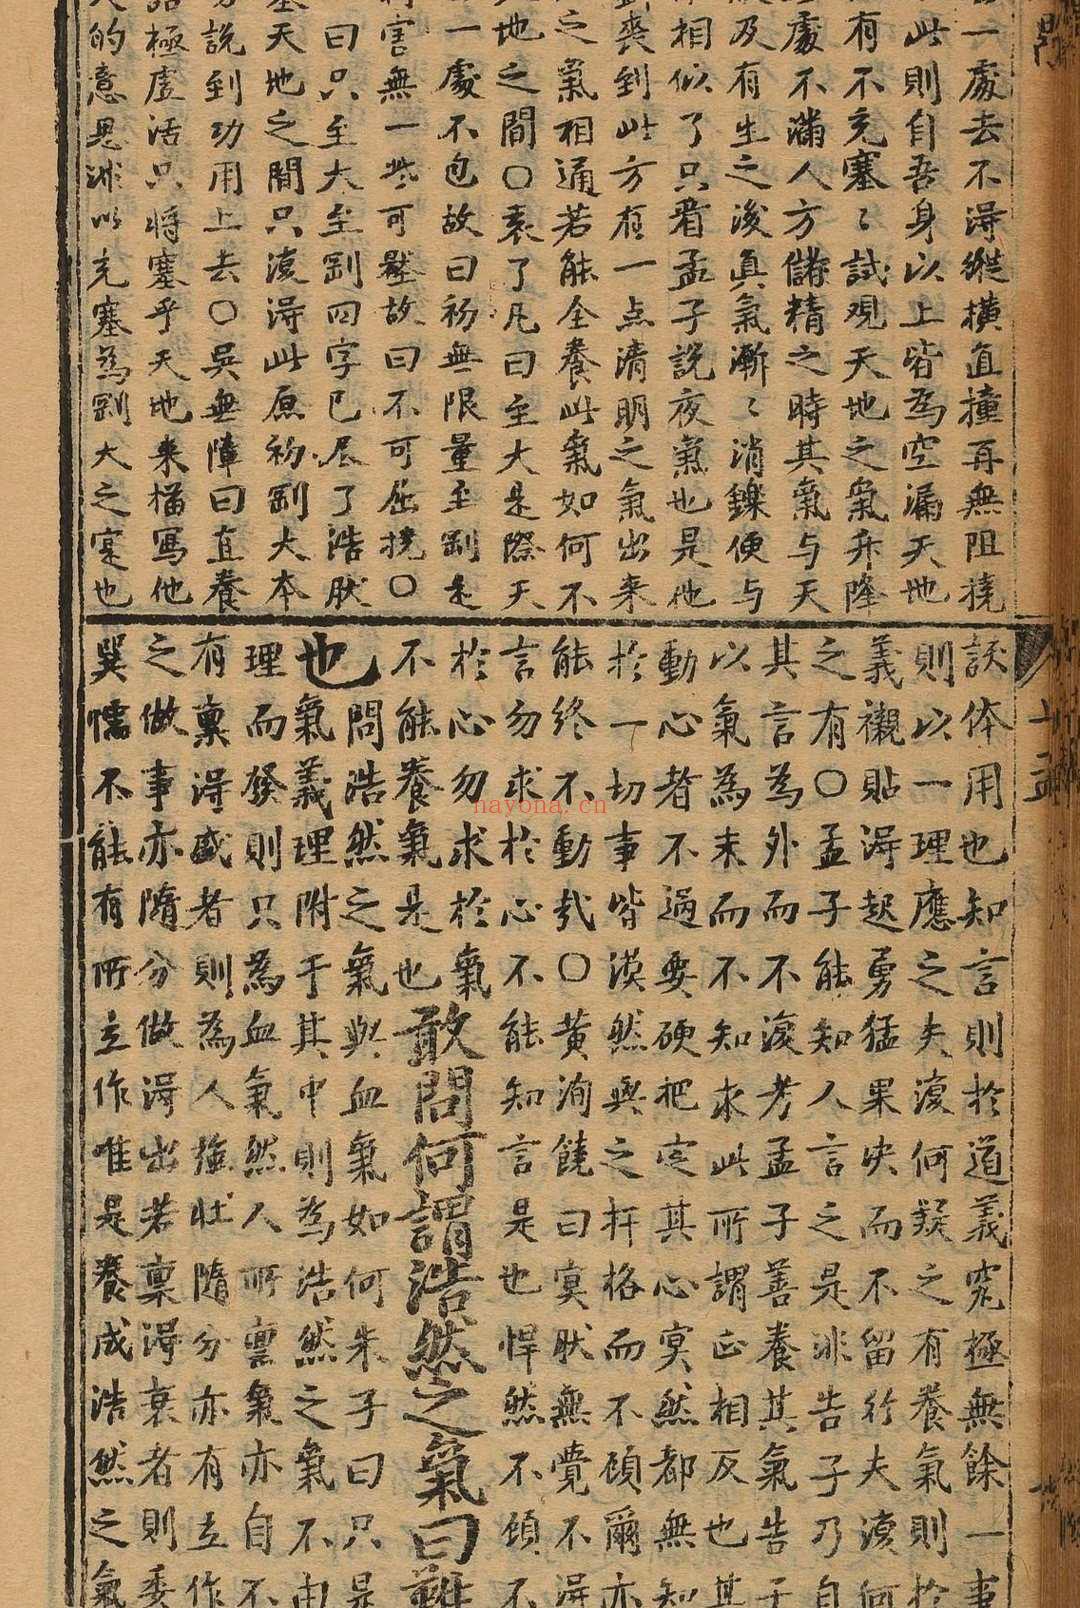 一處去不淂縱橫直撞再無阻撓
此則自吾身以上皆為空漏天地
有不充塞〻試观天地之氣升降
處不滿人方儲精之時其氣与天
及有生之後真氣漸〻消鑠便与
相似了只看孟子説夜氣也是他
喪到此方有一点清明之氣出来
之氣相通若能全養此氣如何不
地之間〇袁了凡曰至大是際天
一處不包故曰初無限量至剛是
害無一些可歉故曰不可屈撓〇
曰只至大至剛四字已尽了浩肰
天地之間只復淂此原初剛大本
說到功用上去〇吳無障曰直養
極虛活只将塞乎天地来描寫他
的意思非以充塞為剛大之寔也
訣体用也知言則於道義究極無餘一事
則以一理應之夫復何疑之有養氣則於
義襯貼淂起勇猛果决而不留行夫復何
之有〇孟子能知人言之是非告子乃自
其言為外而不復考孟子善養其氣告子
以氣為末而不知求此所謂正相反也其
動心者不過要硬把定其心冥然都無知
於一切事皆漠然與之扞格而不顧爾亦
能終不動㢤〇黄洵饒曰冥肰無覺不淂
言勿求於心不能知言是也悍然不顧不
於心勿求於氣
不能養氣是也敢問何謂浩然之氣曰難
也問浩然之氣與血氣如何朱子曰只是
氣義理附于其中則為浩然之氣不由
理而發則只為血氣然人所禀氣亦自不
有禀淂盛者則為人強壮隨分亦有立作
之做事亦隨分做淂出若禀淂衰者則委
巽懦不能有所立作唯是養成浩然之氣
nayona.cn